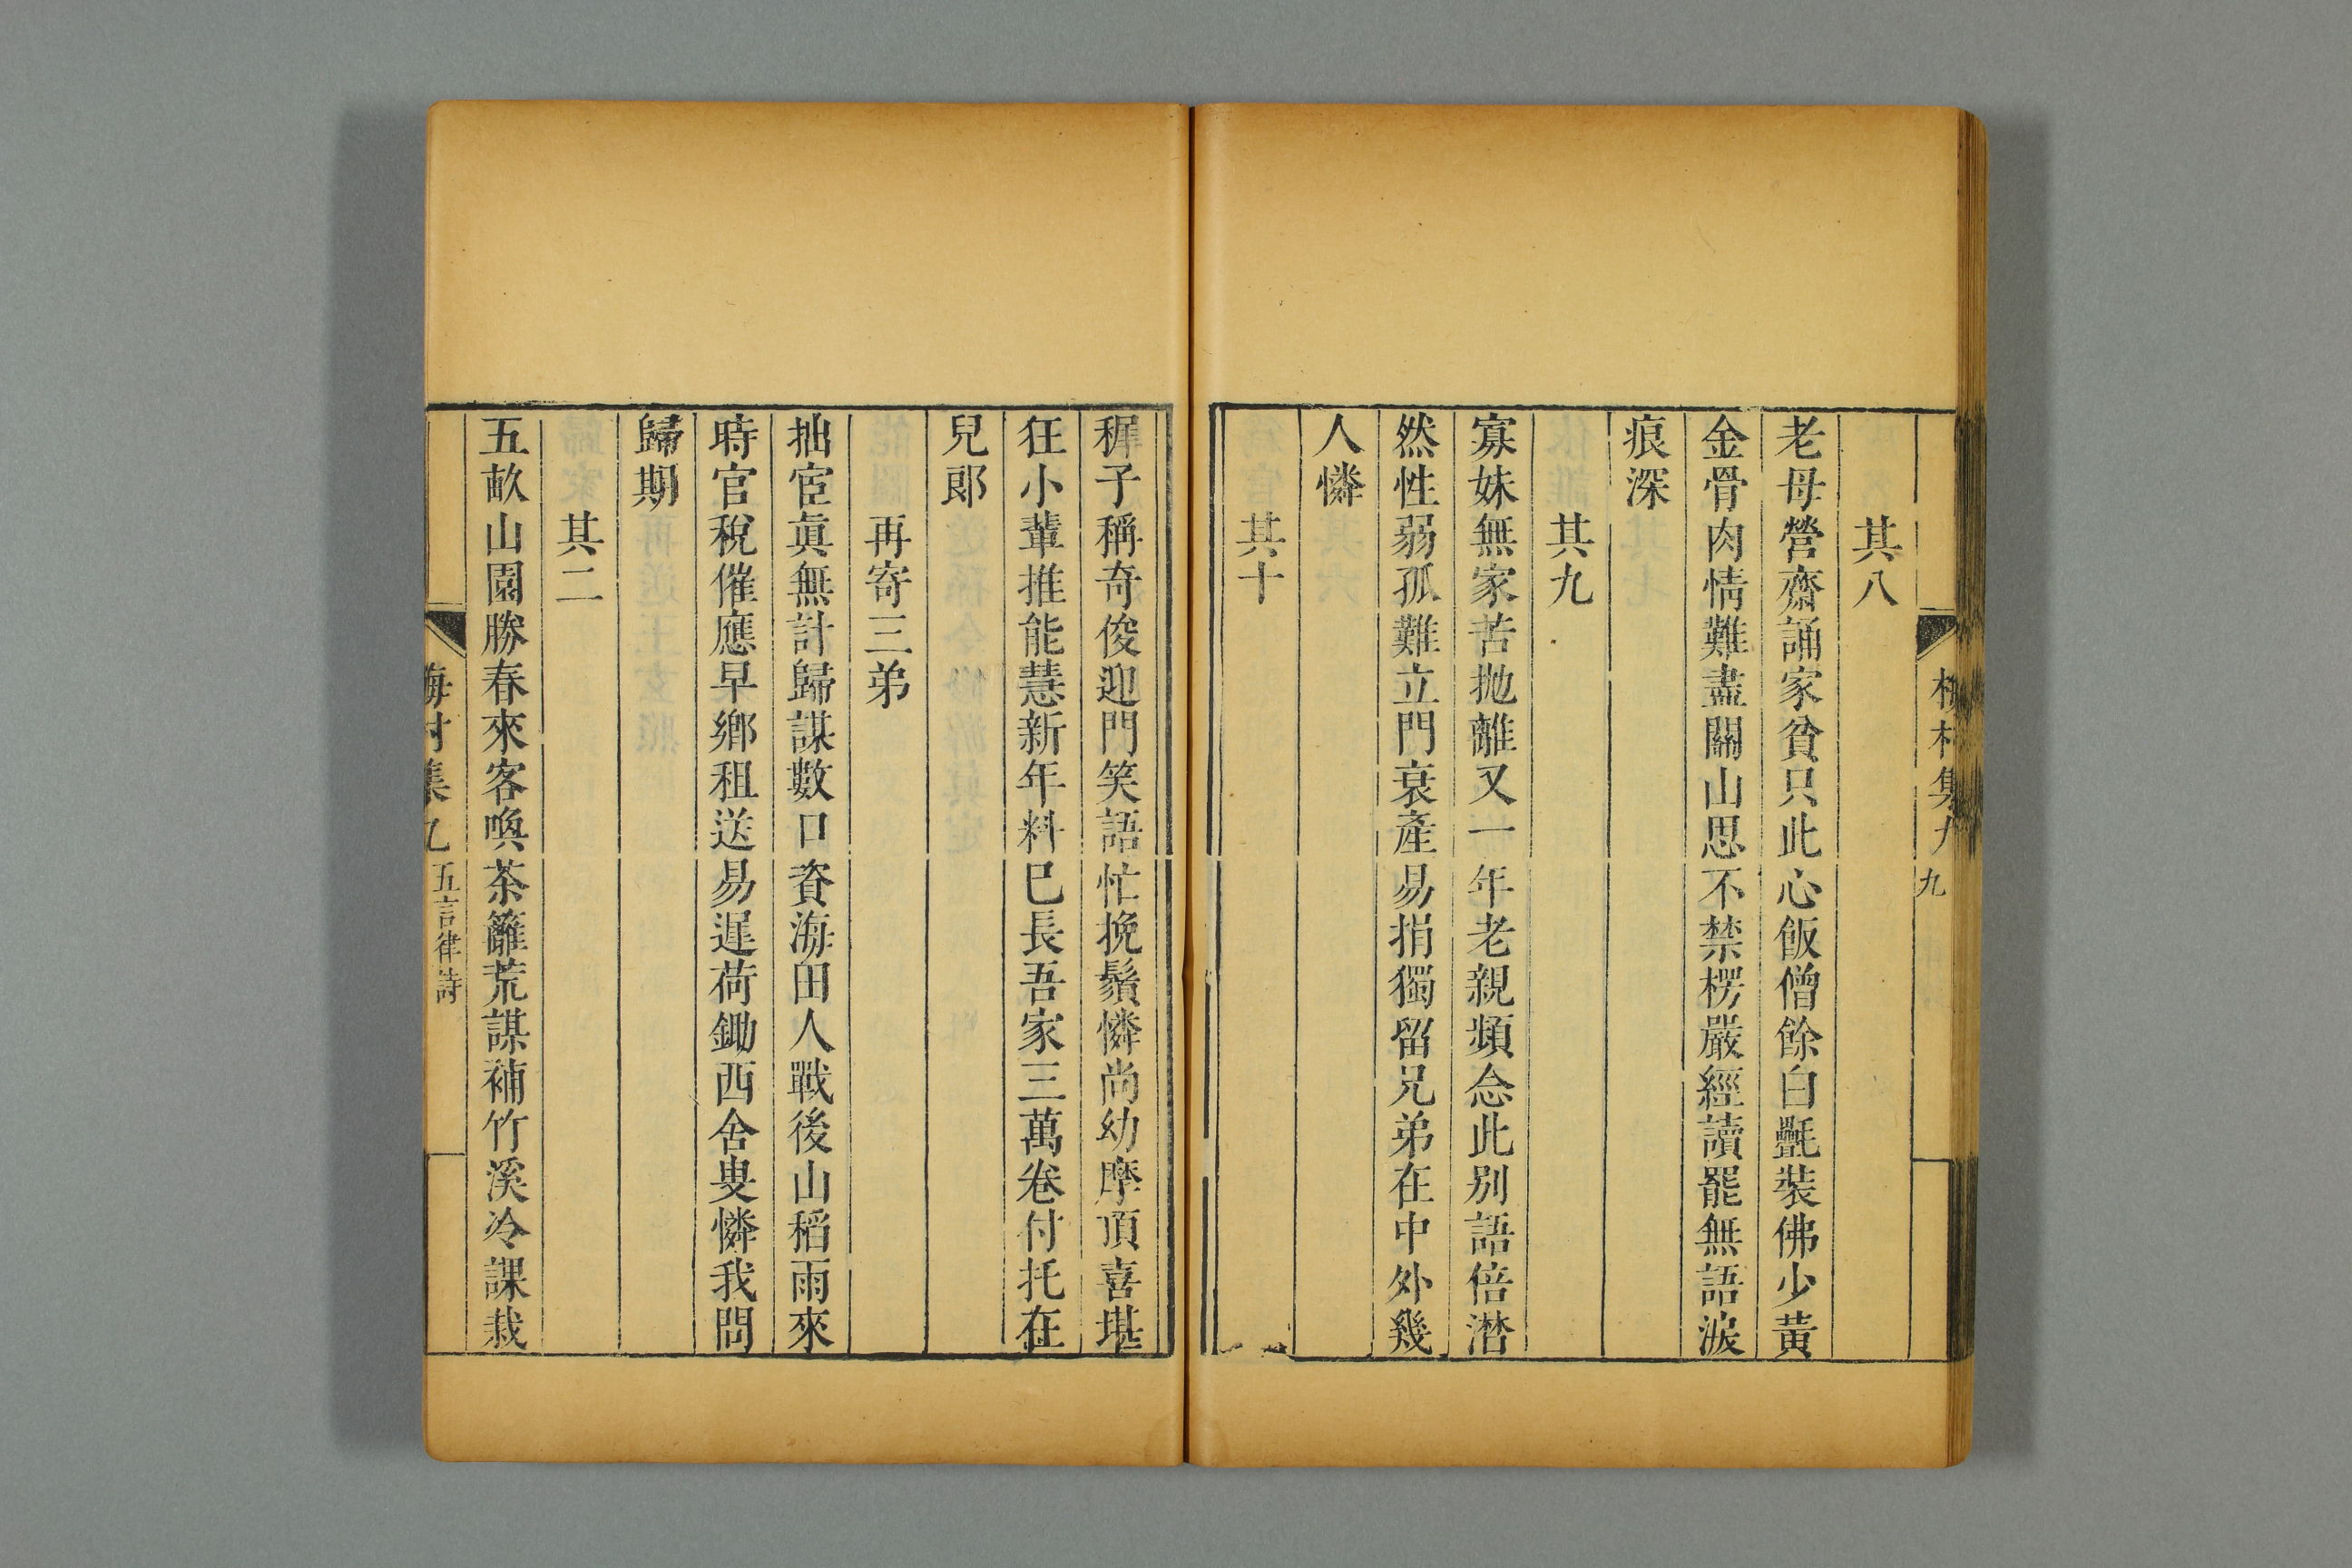 梅村集九
九
其八
老母營齋誦家貧只此心飯僧餘白㲲裝佛少黃
金骨肉情難盡關山思不禁楞嚴經讀罷無語淚
痕深
其九
寡妹無家苦拋離又一年老親頻念此別語倍潸
然性弱孤難立門衰產易捐獨留兄弟在中外幾
人憐
其十
穉子稱奇俊迎門笑語忙挽鬚憐尚幼摩頂喜堪
狂小輩推能慧新年料已長吾家三萬卷付托在
兒郎
再寄三弟
拙宦眞無計歸謀數口資海田人戰後山稻雨來
時官稅催應早鄉租送易遲荷鋤西舍叟憐我問
歸期
其二
五畝山園勝春來客喚茶籬荒謀補竹溪冷課栽
梅村集九
五言律詩